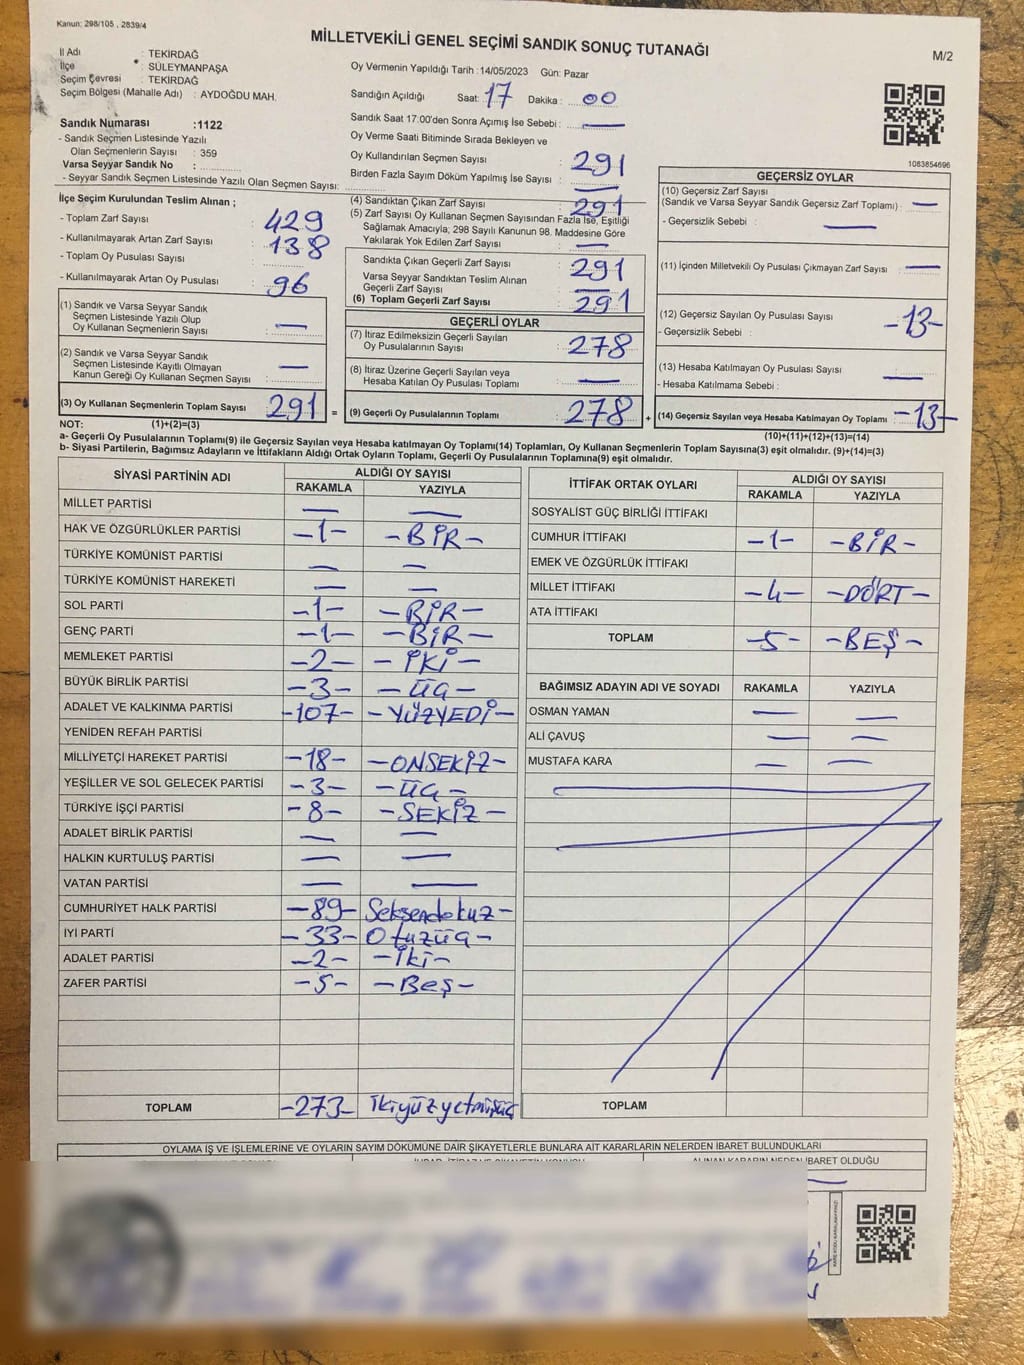 Kanun: 298/105 , 2839/4
MİLLETVEKİLİ GENEL SEÇİMİ SANDIK SONUÇ TUTANAĞI
M/2
İl Adı : TEKİRDAĞ
İlçe : SÜLEYMANPAŞA
Seçim Çevresi : TEKİRDAĞ
Seçim Bölgesi (Mahalle Adı) : AYDOĞDU MAH.
Sandık Numarası :1122
- Sandık Seçmen Listesinde Yazılı
Olan Seçmenlerin Sayısı : 359
Varsa Seyyar Sandık No :
- Seyyar Sandık Seçmen Listesinde Yazılı Olan Seçmen Sayısı:
Oy Vermenin Yapıldığı Tarih :14/05/2023 Gün: Pazar
Sandığın Açıldığı Saat: 17 Dakika : 00
Sandık Saat 17:00'den Sonra Açımış İse Sebebi : —
Oy Verme Saati Bitiminde Sırada Bekleyen ve
Oy Kullandırılan Seçmen Sayısı : 291
Birden Fazla Sayım Döküm Yapılmış İse Sayısı : —
1083854696
İlçe Seçim Kurulundan Teslim Alınan ;
- Toplam Zarf Sayısı : 429
- Kullanılmayarak Artan Zarf Sayısı : 138
- Toplam Oy Pusulası Sayısı :
- Kullanılmayarak Artan Oy Pusulası : 96
(1) Sandık ve Varsa Seyyar Sandık
Seçmen Listesinde Yazılı Olup
Oy Kullanan Seçmenlerin Sayısı : —
(2) Sandık ve Varsa Seyyar Sandık
Seçmen Listesinde Kayıtlı Olmayan
Kanun Gereği Oy Kullanan Seçmen Sayısı : —
(3) Oy Kullanan Seçmenlerin Toplam Sayısı 291 =
(4) Sandıktan Çıkan Zarf Sayısı : 291
(5) Zarf Sayısı Oy Kullanan Seçmen Sayısından Fazla İse, Eşitliği
Sağlamak Amacıyla; 298 Sayılı Kanunun 98. Maddesine Göre
Yakılarak Yok Edilen Zarf Sayısı : —
Sandıkta Çıkan Geçerli Zarf Sayısı : 291
Varsa Seyyar Sandıktan Teslim Alınan
Geçerli Zarf Sayısı : —
(6) Toplam Geçerli Zarf Sayısı : 291
GEÇERLİ OYLAR
(7) İtiraz Edilmeksizin Geçerli Sayılan
Oy Pusulalarının Sayısı : 278
(8) İtiraz Üzerine Geçerli Sayılan veya
Hesaba Katılan Oy Pusulası Toplamı : —
(9) Geçerli Oy Pusulalarının Toplamı : 278 +
GEÇERSİZ OYLAR
(10) Geçersiz Zarf Sayısı
(Sandık ve Varsa Seyyar Sandık Geçersiz Zarf Toplamı) : —
- Geçersizlik Sebebi : —
(11) İçinden Milletvekili Oy Pusulası Çıkmayan Zarf Sayısı : —
(12) Geçersiz Sayılan Oy Pusulası Sayısı : -13-
- Geçersizlik Sebebi :
(13) Hesaba Katılmayan Oy Pusulası Sayısı : —
- Hesaba Katılmama Sebebi :
(14) Geçersiz Sayılan veya Hesaba Katılmayan Oy Toplamı : -13-
NOT: (1)+(2)=(3)
(10)+(11)+(12)+(13)=(14)
a- Geçerli Oy Pusulalarının Toplamı(9) ile Geçersiz Sayılan veya Hesaba katılmayan Oy Toplamı(14) Toplamları, Oy Kullanan Seçmenlerin Toplam Sayısına(3) eşit olmalıdır. (9)+(14)=(3)
b- Siyasi Partilerin, Bağımsız Adayların ve İttifakların Aldığı Ortak Oyların Toplamı, Geçerli Oy Pusulalarının Toplamına(9) eşit olmalıdır.
SİYASİ PARTİNİN ADI ALDIĞI OY SAYISI
RAKAMLA YAZIYLA
MİLLET PARTİSİ — —
HAK VE ÖZGÜRLÜKLER PARTİSİ -1- -BİR-
TÜRKİYE KOMÜNİST PARTİSİ — —
TÜRKİYE KOMÜNİST HAREKETİ — —
SOL PARTİ -1- -BİR-
GENÇ PARTİ -1- -BİR-
MEMLEKET PARTİSİ -2- -İKİ-
BÜYÜK BİRLİK PARTİSİ -3- -ÜÇ-
ADALET VE KALKINMA PARTİSİ -107- -YÜZYEDİ-
YENİDEN REFAH PARTİSİ
MİLLİYETÇİ HAREKET PARTİSİ -18- -ONSEKİZ-
YEŞİLLER VE SOL GELECEK PARTİSİ -3- -ÜÇ-
TÜRKİYE İŞÇİ PARTİSİ -8- -SEKİZ-
ADALET BİRLİK PARTİSİ — —
HALKIN KURTULUŞ PARTİSİ — —
VATAN PARTİSİ — —
CUMHURİYET HALK PARTİSİ -89- Seksendokuz-
İYİ PARTİ -33- Otuzüç-
ADALET PARTİSİ -2- -İki-
ZAFER PARTİSİ -5- -Beş-
TOPLAM -273- ikiyüzyetmişüç
İTTİFAK ORTAK OYLARI ALDIĞI OY SAYISI
RAKAMLA YAZIYLA
SOSYALİST GÜÇ BİRLİĞİ İTTİFAKI
CUMHUR İTTİFAKI -1- -BİR-
EMEK VE ÖZGÜRLÜK İTTİFAKI
MİLLET İTTİFAKI -4- -DÖRT-
ATA İTTİFAKI
TOPLAM -5- -BEŞ-
BAĞIMSIZ ADAYIN ADI VE SOYADI RAKAMLA YAZIYLA
OSMAN YAMAN — —
ALİ ÇAVUŞ — —
MUSTAFA KARA — —
TOPLAM
OYLAMA İŞ VE İŞLEMLERİNE VE OYLARIN SAYIM DÖKÜMÜNE DAİR ŞİKAYETLERLE BUNLARA AİT KARARLARIN NELERDEN İBARET BULUNDUKLARI
ALINAN KARARIN NEDEN İBARET OLDUĞU